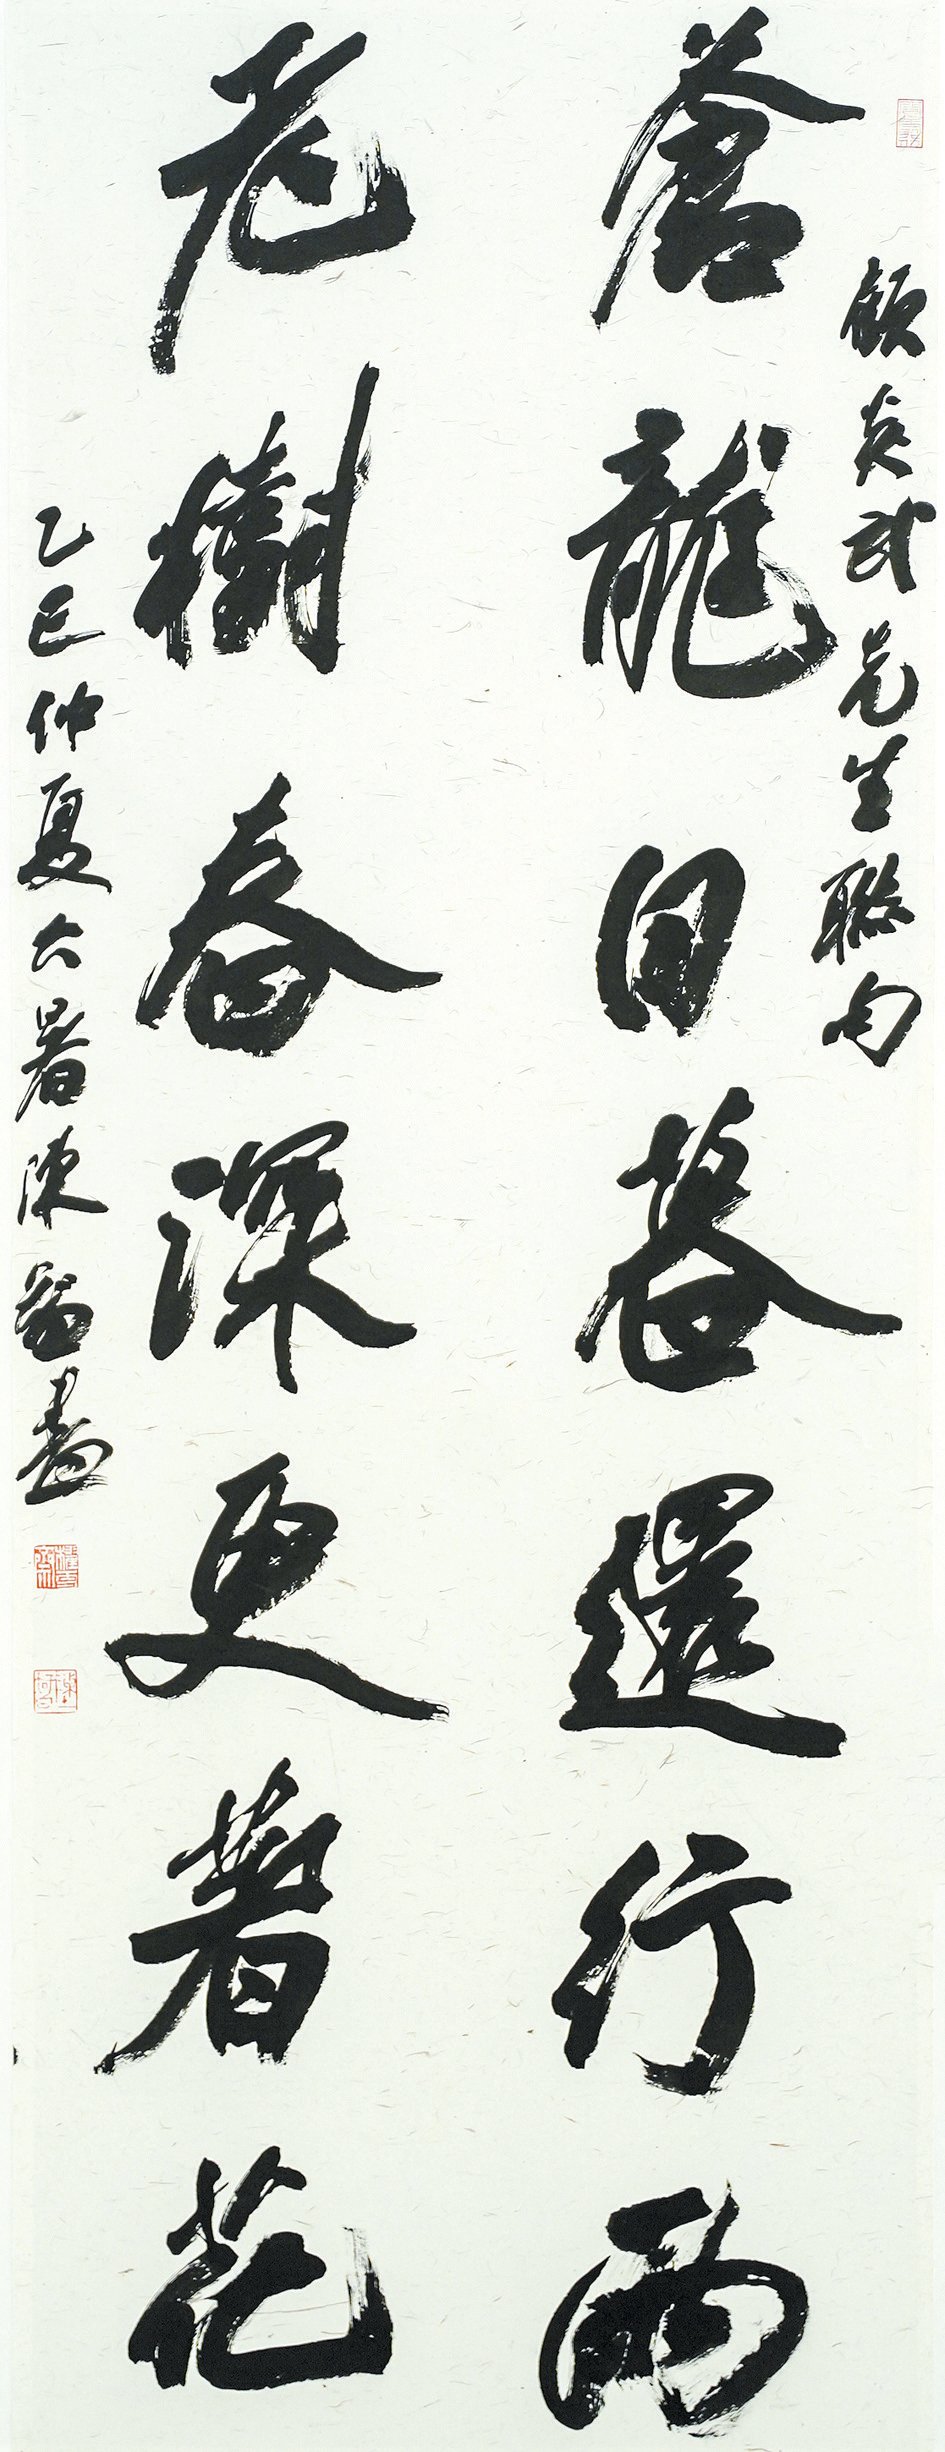 顧炎武先生聯句
蒼龍日暮還行雨
老樹春深更著花
乙巳仲夏大暑陳
書